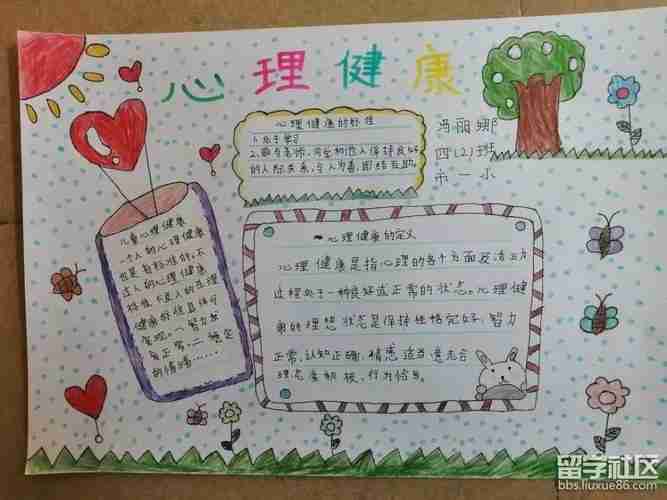 心理健康
心理健康的特性
1.处于学习
2.跟与老师、同学和他人保持良好
的人际关系,与人为善,团结互助。
冯丽娜
四(2)班
市一小
儿童心理健康
一个人的心理健康
也是有标准的,不
过人的心理健康
标准不及人的生理
健康标准具体与
客观。一、智力发
育正常,二、稳定
的情绪......
一心理健康的定义
心理健康是指心理的各个方面及活动
过程处于一种良好或正常的状态。心理健
康的理想状态是保持性格完好、智力
正常、认知正确、情感适当、意志合
理、态度积极、行为恰当。
留学社区
bbs.liuxue86.com